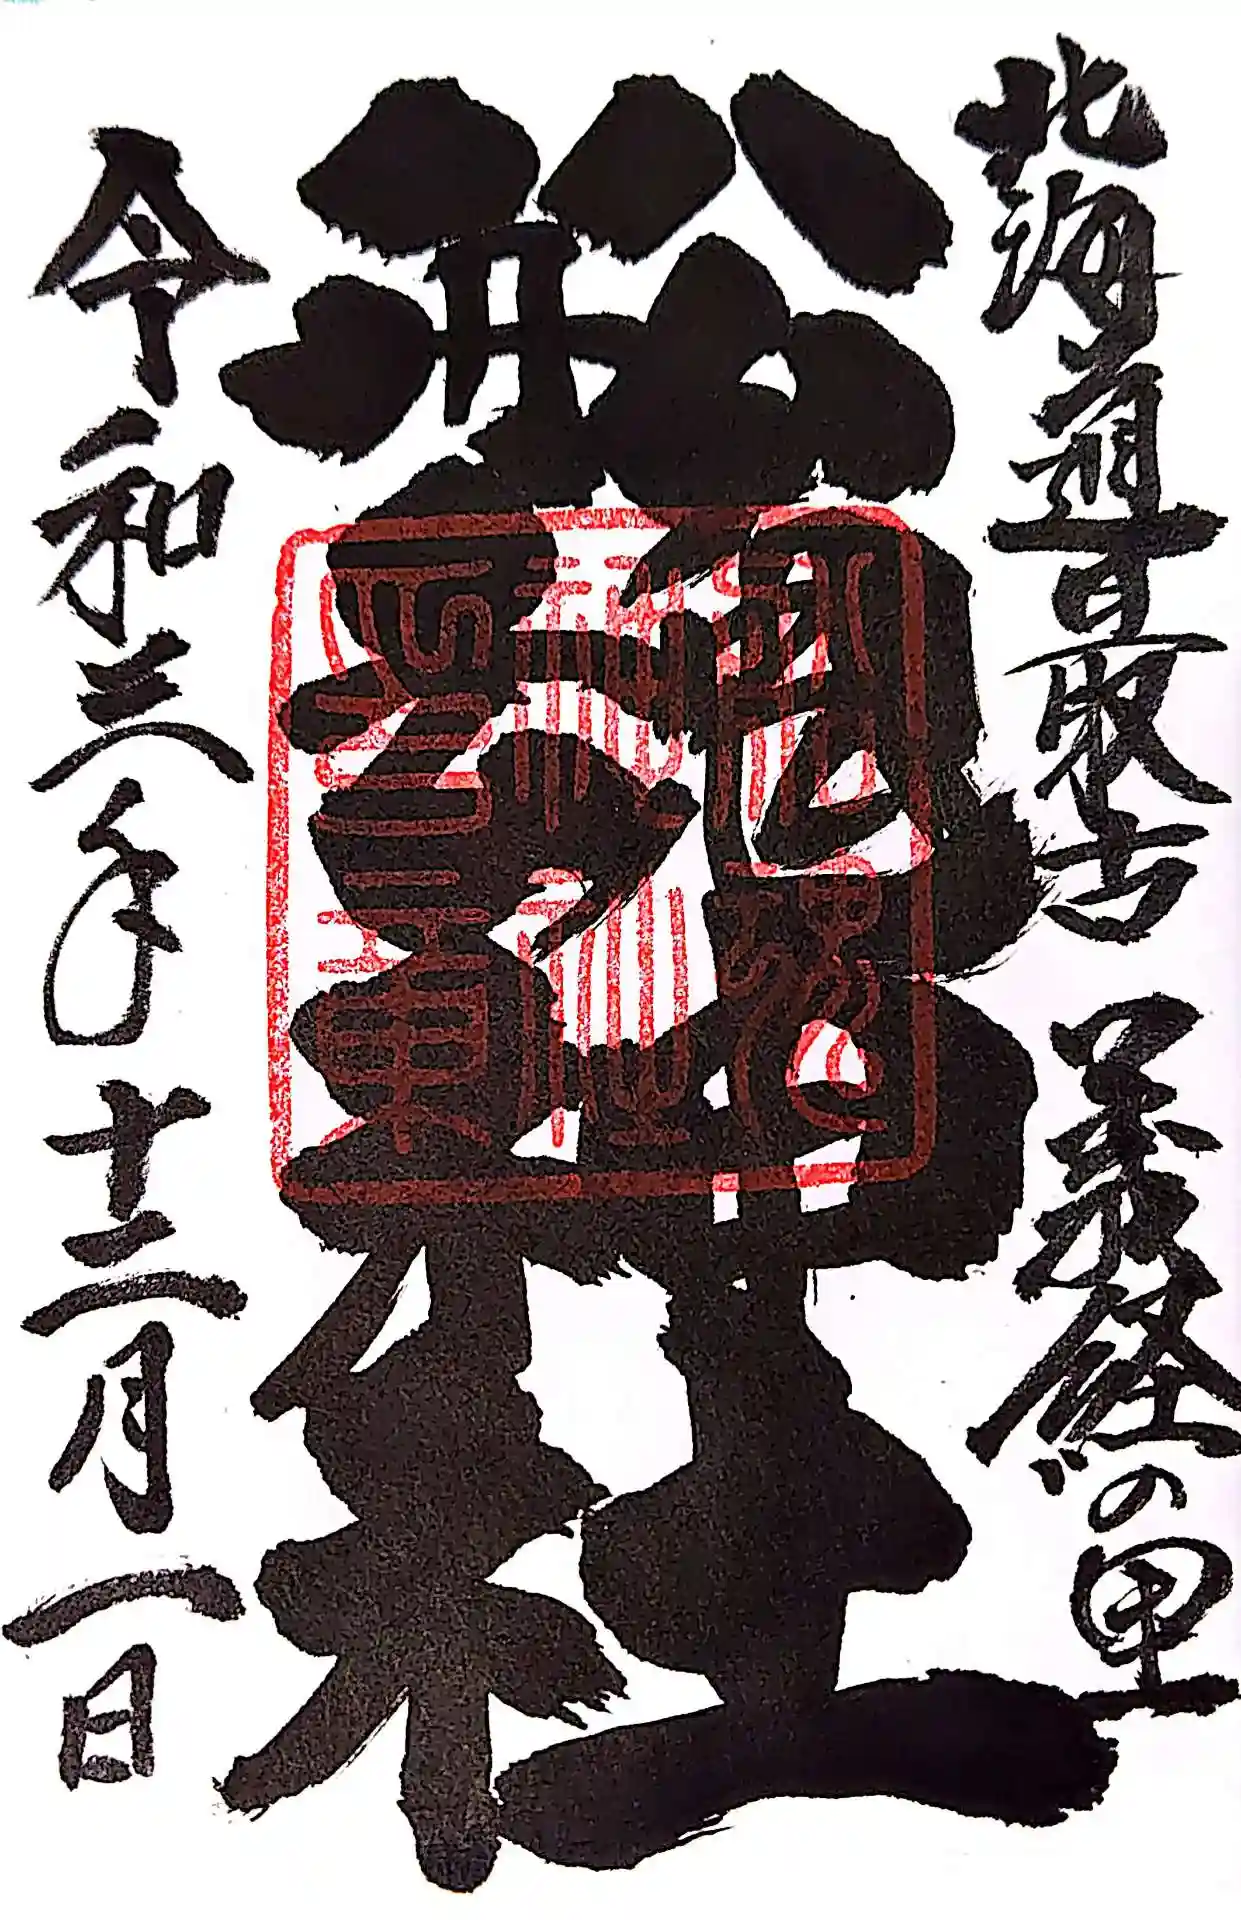 北海道最古 義経の里
船魂神社
令和三年十二月一日